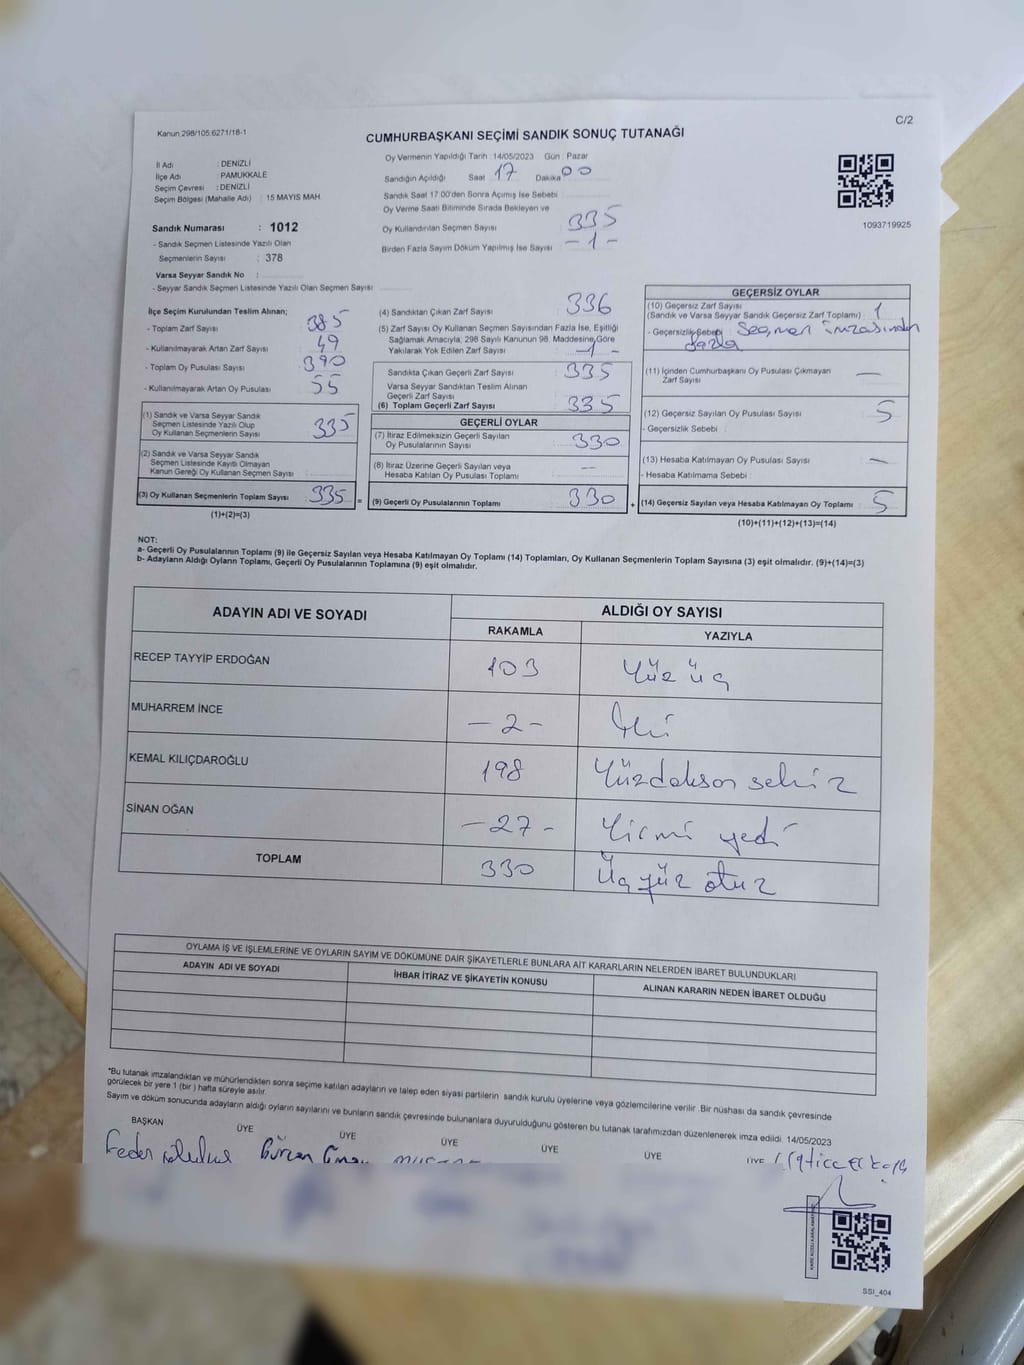 Kanun:298/105;6271/18-1
C/2
CUMHURBAŞKANI SEÇİMİ SANDIK SONUÇ TUTANAĞI
İl Adı : DENİZLİ
İlçe Adı : PAMUKKALE
Seçim Çevresi : DENİZLİ
Seçim Bölgesi (Mahalle Adı) : 15 MAYIS MAH.
Sandık Numarası : 1012
- Sandık Seçmen Listesinde Yazılı Olan
Seçmenlerin Sayısı : 378
Varsa Seyyar Sandık No :
- Seyyar Sandık Seçmen Listesinde Yazılı Olan Seçmen Sayısı :
Oy Vermenin Yapıldığı Tarih : 14/05/2023 Gün : Pazar
Sandığın Açıldığı Saat 17 Dakika 00
Sandık Saat 17.00'den Sonra Açımış İse Sebebi
Oy Verme Saati Bitiminde Sırada Bekleyen ve
Oy Kullandırılan Seçmen Sayısı 335
Birden Fazla Sayım Döküm Yapılmış İse Sayısı - 1 -
1093719925
İlçe Seçim Kurulundan Teslim Alınan;
- Toplam Zarf Sayısı 385
- Kullanılmayarak Artan Zarf Sayısı 49
- Toplam Oy Pusulası Sayısı 390
- Kullanılmayarak Artan Oy Pusulası 55
(1) Sandık ve Varsa Seyyar Sandık
Seçmen Listesinde Yazılı Olup
Oy Kullanan Seçmenlerin Sayısı 335
(2) Sandık ve Varsa Seyyar Sandık
Seçmen Listesinde Kayıtlı Olmayan
Kanun Gereği Oy Kullanan Seçmen Sayısı
(3) Oy Kullanan Seçmenlerin Toplam Sayısı 335 =
(1)+(2)=(3)
(4) Sandıktan Çıkan Zarf Sayısı 336
(5) Zarf Sayısı Oy Kullanan Seçmen Sayısından Fazla İse, Eşitliği
Sağlamak Amacıyla; 298 Sayılı Kanunun 98. Maddesine Göre
Yakılarak Yok Edilen Zarf Sayısı -1-
Sandıkta Çıkan Geçerli Zarf Sayısı 335
Varsa Seyyar Sandıktan Teslim Alınan
Geçerli Zarf Sayısı
(6) Toplam Geçerli Zarf Sayısı 335
GEÇERLİ OYLAR
(7) İtiraz Edilmeksizin Geçerli Sayılan
Oy Pusulalarının Sayısı 330
(8) İtiraz Üzerine Geçerli Sayılan veya
Hesaba Katılan Oy Pusulası Toplamı —
(9) Geçerli Oy Pusulalarının Toplamı 330 +
GEÇERSİZ OYLAR
(10) Geçersiz Zarf Sayısı
(Sandık ve Varsa Seyyar Sandık Geçersiz Zarf Toplamı) : 1
- Geçersizlik Sebebi : Seçmen imzasından
fazla
(11) İçinden Cumhurbaşkanı Oy Pusulası Çıkmayan
Zarf Sayısı —
(12) Geçersiz Sayılan Oy Pusulası Sayısı 5
- Geçersizlik Sebebi :
(13) Hesaba Katılmayan Oy Pusulası Sayısı —
- Hesaba Katılmama Sebebi :
(14) Geçersiz Sayılan veya Hesaba Katılmayan Oy Toplamı 5
(10)+(11)+(12)+(13)=(14)
NOT:
a- Geçerli Oy Pusulalarının Toplamı (9) ile Geçersiz Sayılan veya Hesaba Katılmayan Oy Toplamı (14) Toplamları, Oy Kullanan Seçmenlerin Toplam Sayısına (3) eşit olmalıdır. (9)+(14)=(3)
b- Adayların Aldığı Oyların Toplamı, Geçerli Oy Pusulalarının Toplamına (9) eşit olmalıdır.
ADAYIN ADI VE SOYADI
ALDIĞI OY SAYISI
RAKAMLA YAZIYLA
RECEP TAYYİP ERDOĞAN 103 Yüz üç
MUHARREM İNCE - 2 - İki
KEMAL KILIÇDAROĞLU 198 Yüzdoksan sekiz
SİNAN OĞAN - 27 - Yirmi yedi
TOPLAM 330 Üç yüz otuz
OYLAMA İŞ VE İŞLEMLERİNE VE OYLARIN SAYIM VE DÖKÜMÜNE DAİR ŞİKAYETLERLE BUNLARA AİT KARARLARIN NELERDEN İBARET BULUNDUKLARI
ADAYIN ADI VE SOYADI İHBAR İTİRAZ VE ŞİKAYETİN KONUSU ALINAN KARARIN NEDEN İBARET OLDUĞU
*Bu tutanak imzalandıktan ve mühürlendikten sonra seçime katılan adayların ve talep eden siyasi partilerin sandık kurulu üyelerine veya gözlemcilerine verilir .Bir nüshası da sandık çevresinde
görülecek bir yere 1 (bir ) hafta süreyle asılır.
Sayım ve döküm sonucunda adayların aldığı oyların sayılarını ve bunların sandık çevresinde bulunanlara duyurulduğunu gösteren bu tutanak tarafımızdan düzenlenerek imza edildi. 14/05/2023
BAŞKAN ÜYE ÜYE ÜYE ÜYE ÜYE ÜYE
SSI_404